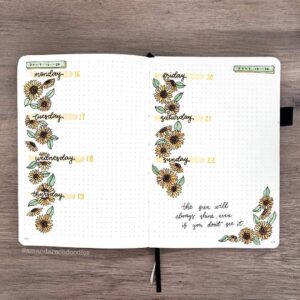 monday 16
friday 20
tuesday 17
saturday 21
wednesday 18
sunday 22
thursday 19
the sun will
always shine, even
if you don't see it.
@amandarachdoodles